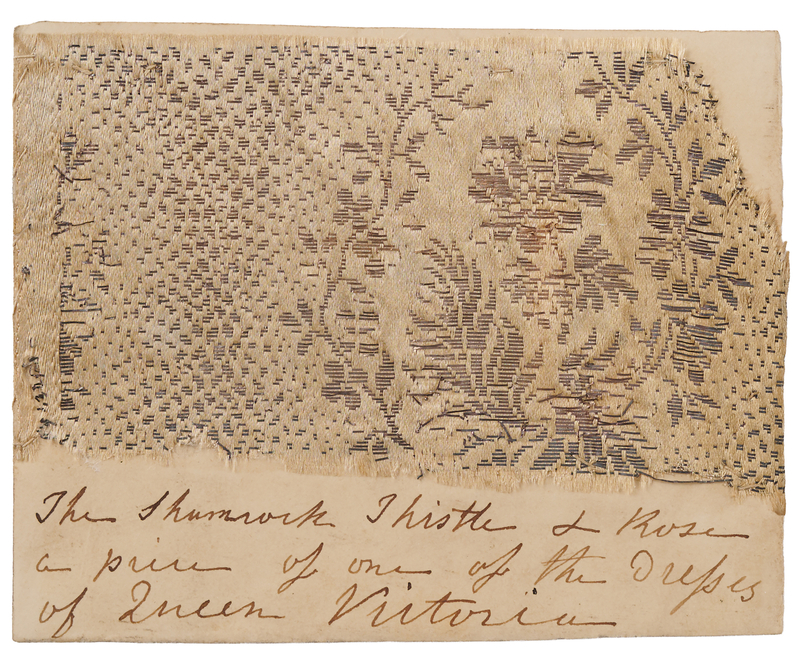 The Shamrock Thistle & Rose
a piece of one of the Dresses
of Queen Victoria